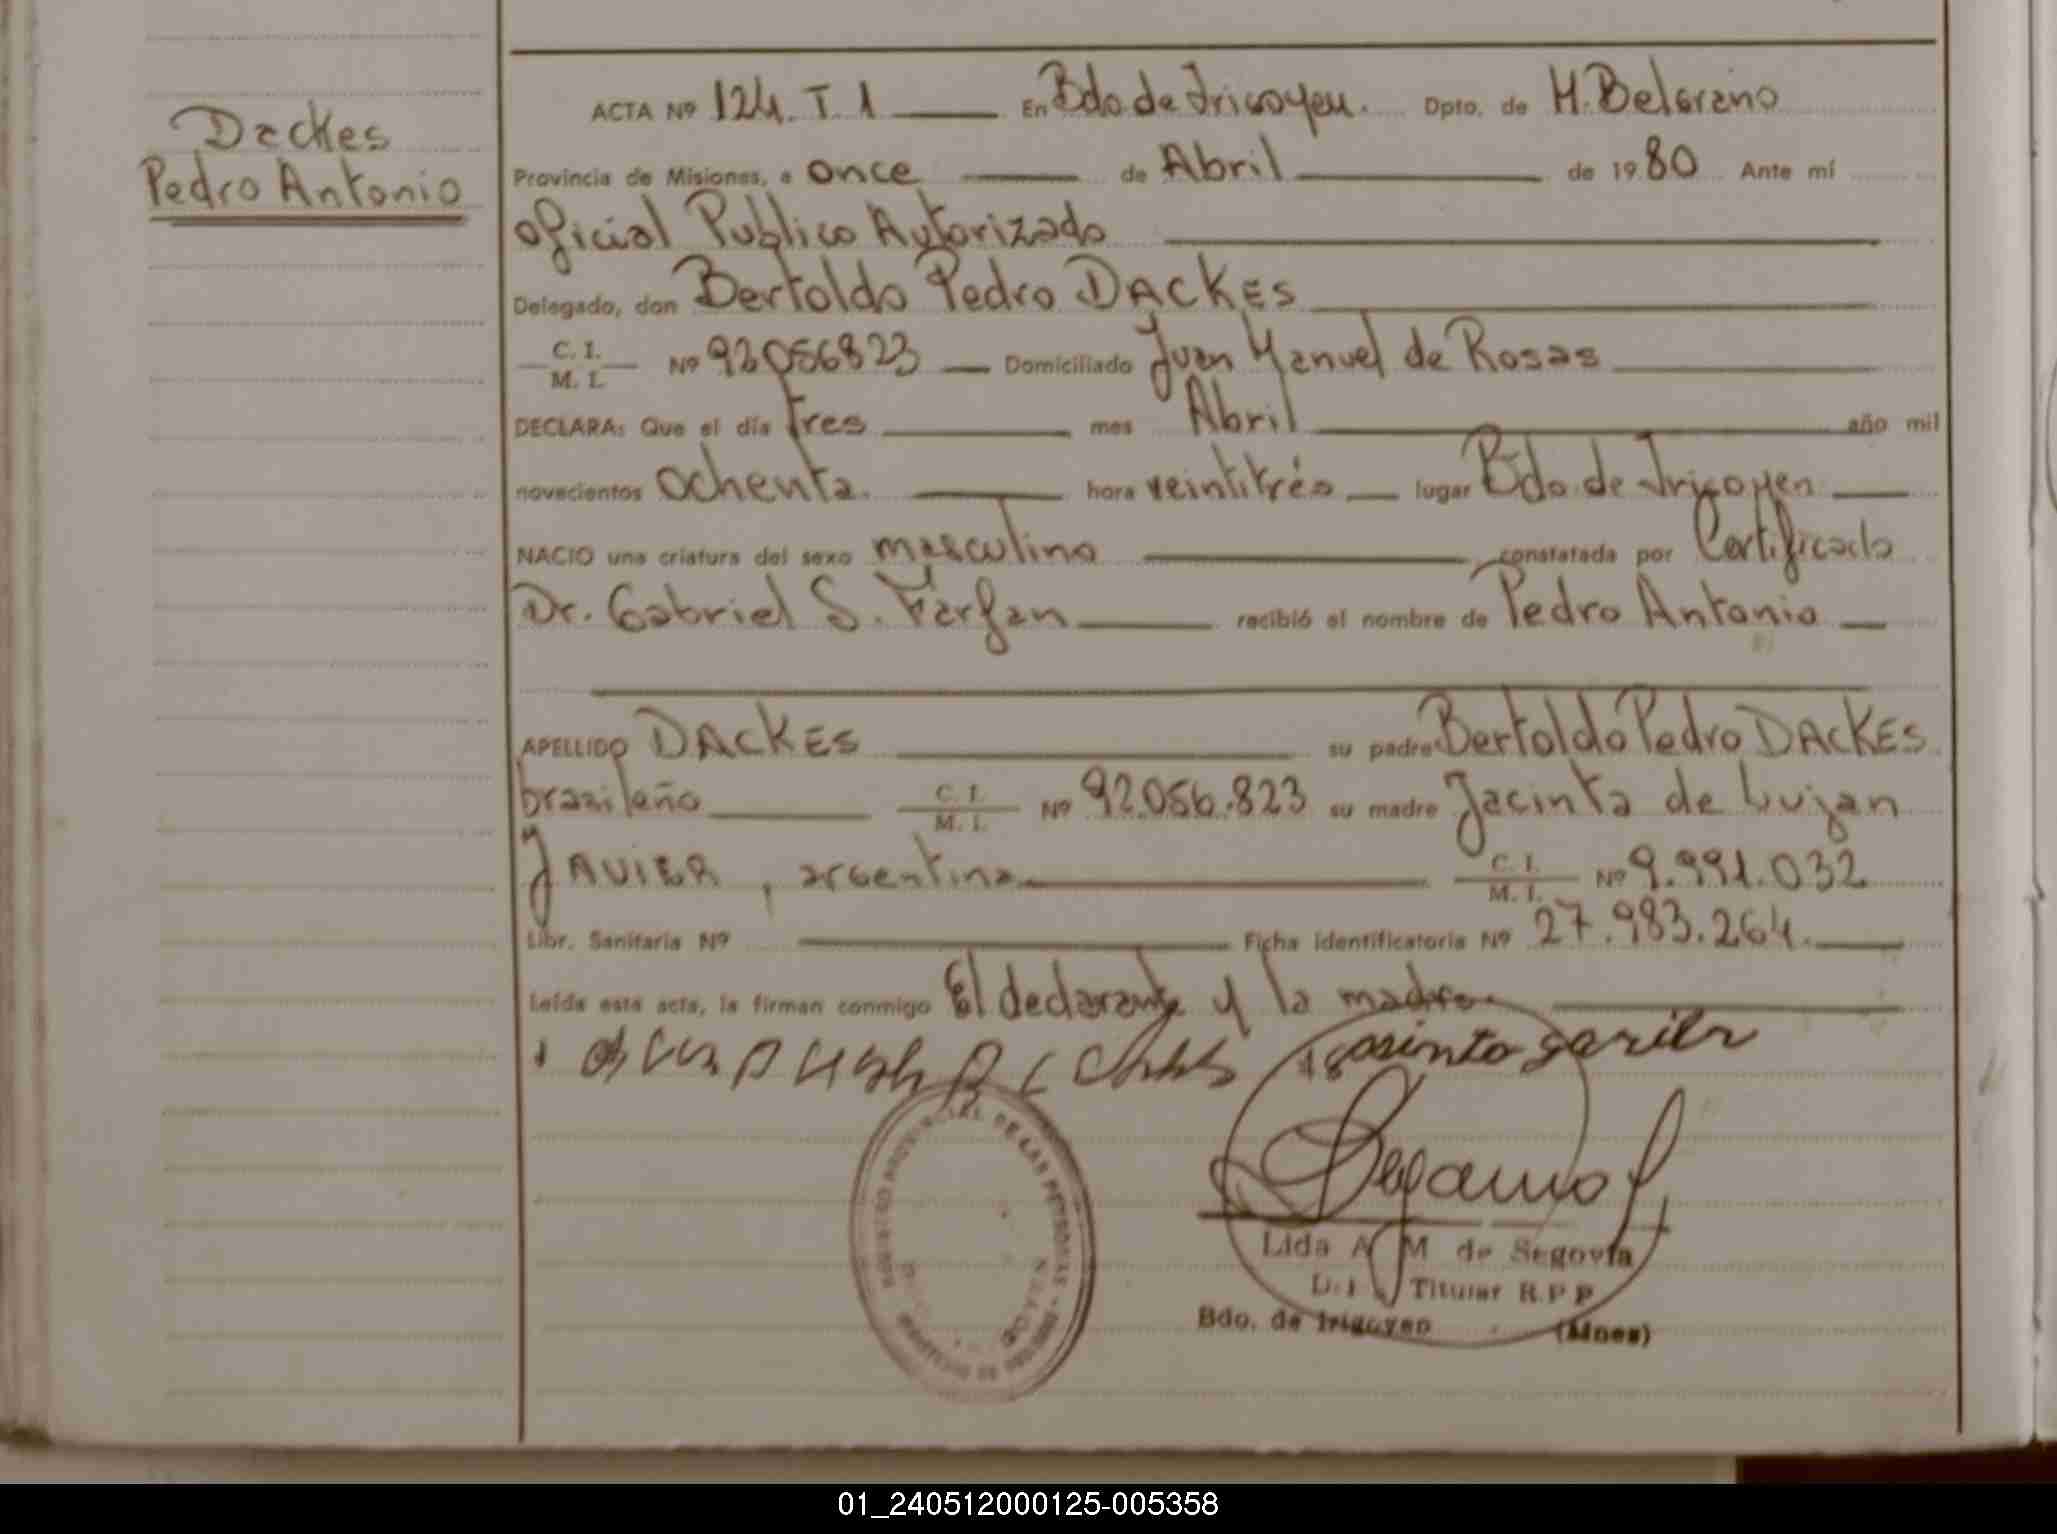 Dackes
Pedro Antonio
ACTA Nº 124. T. 1 En Bdo. de Irigoyen. Dpto. de M. Belgrano
Provincia de Misiones, a once de Abril de 1980 Ante mí
Oficial Publico Autorizado
Delegado, don Bertoldo Pedro DACKES
C. I.
M. I. Nº 92056823 Domiciliado Juan Manuel de Rosas
DECLARA: Que el día tres mes Abril año mil
novecientos ochenta. hora veintitrés lugar Bdo. de Irigoyen
NACIO una criatura del sexo masculino constatada por Certificado
Dr. Gabriel S. Farfan recibió el nombre de Pedro Antonio
APELLIDO DACKES su padre Bertoldo Pedro DACKES
brasileño C. I. M. I. Nº 92.056.823 su madre Jacinta de Lujan
JAVIER, argentina C. I. M. I. Nº 9.991.032
Libr. Sanitaria Nº Ficha identificatoria Nº 27.983.264.
Leída esta acta, la firman conmigo El declarante y la madre.
Lida A M de Segovia
Titular R.P.P
Bdo. de Irigoyen (Mnes)
01_240512000125-005358